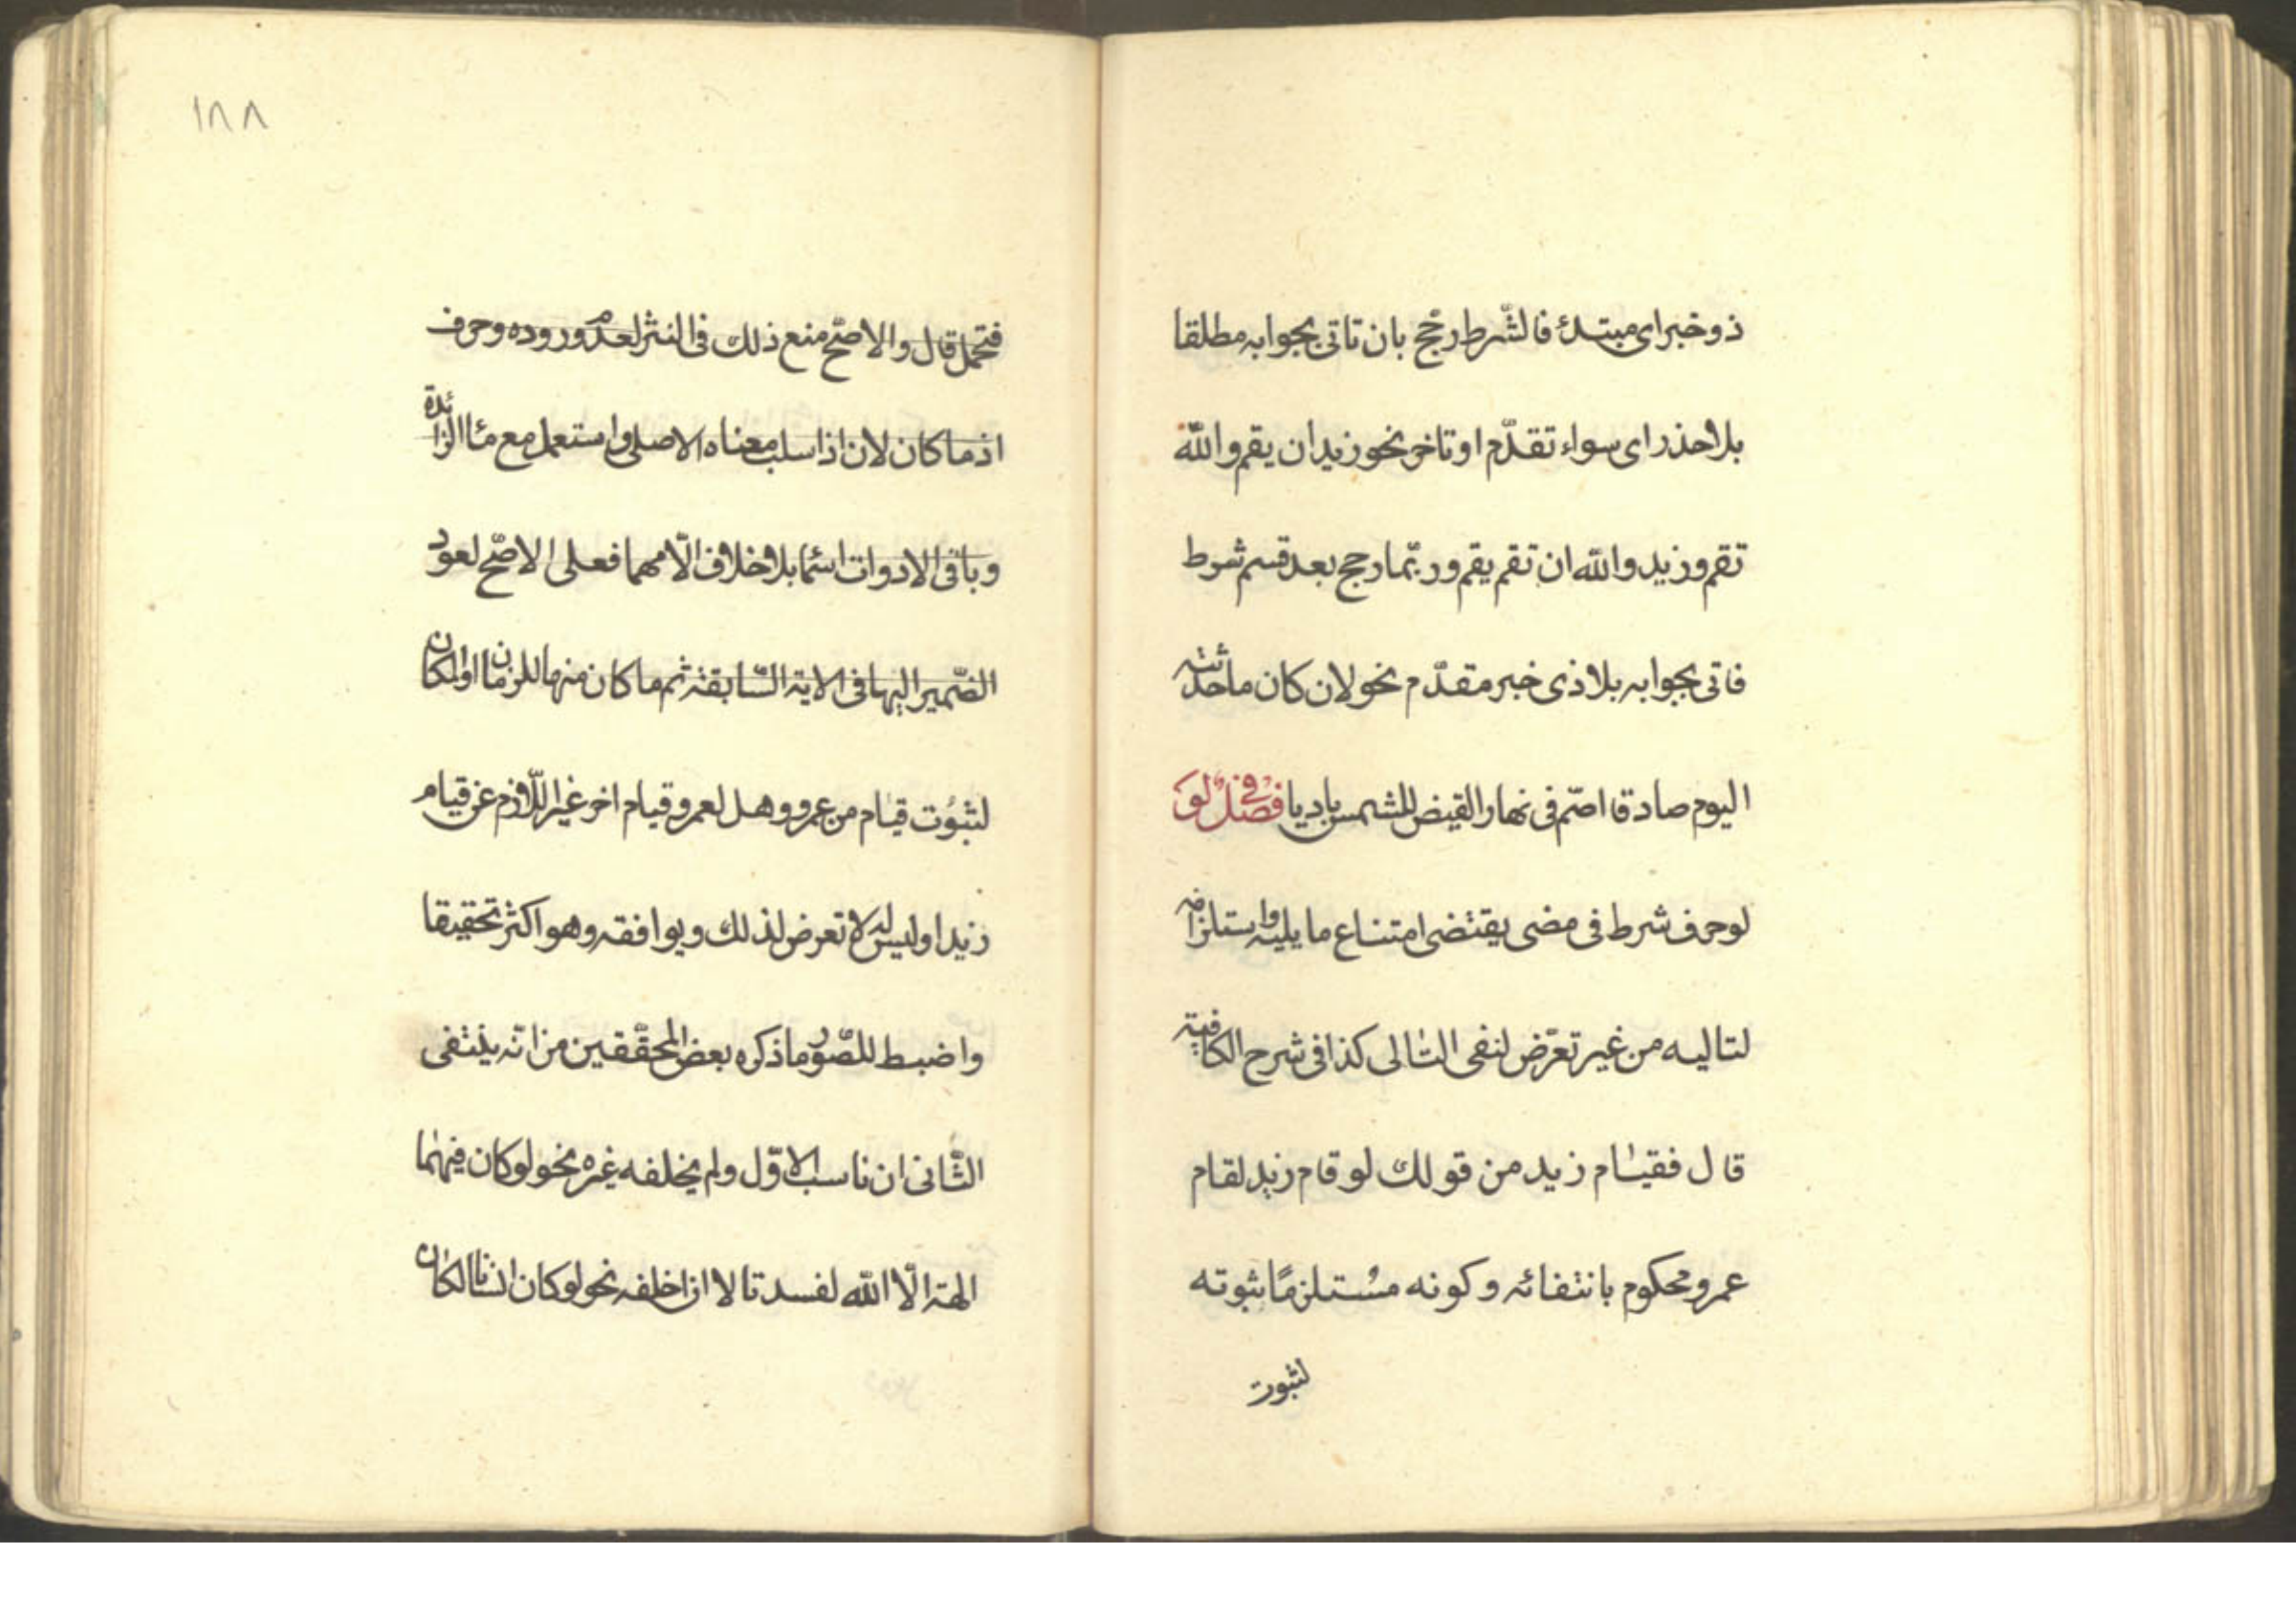 ذو خبر ای مبتدئ فالشّرط رجّح بان تاتی بجوابه مطلقا
بلا حذر ای سواء تقدّم او تاخر نحو زید ان یقم والله
تقم وزید والله ان تقم یقم وربّما رجح بعد قسم شرط
فاتی بجوابه بلا ذی خبر مقدّم نحو لان کان ما حدّثته
الیوم صادقا اصّم فی نهار القیض للشمس بادیا فصل فی لو
لو حرف شرط فی مضی یقتضی امتناع ما یلیه واستلزامه
لتالیه من غیر تعرّض لنفی التالی کذا فی شرح الکافیة
قال فقیام زید من قولك لو قام زید لقام
عمرو محکوم بانتفائه وکونه مستلزمًا ثبوته
لثبوت
۱۸۸
فتحمل قال والاصّح منع ذلك فی النثر لعدم وروده وحرف
اذما کان لان اذا سلب معناه الاصلی واستعمل مع ما الزائدة
وباقی الادوات اسما بلا خلاف الّا مهما فعلی الاصّح لعود
الضّمیر الیها فی الایة السّابقة ثم ما کان منها للزمان او المکان
لثبوت قیام من عمرو وهل لعمرو قیام اخر غیر اللّازم عن قیام
زید او لیس له لا تعرض لذلك ویوافقه وهو اکثر تحقیقا
واضبط للصّور ما ذکره بعض المحقّقین من انّه ینتفی
الثّانی ان ناسب الاوّل ولم یخلفه غیره نحو لو کان فیهما
الهة الّا الله لفسدتا لا ان اخلفه نحو لو کان انسانا لکان